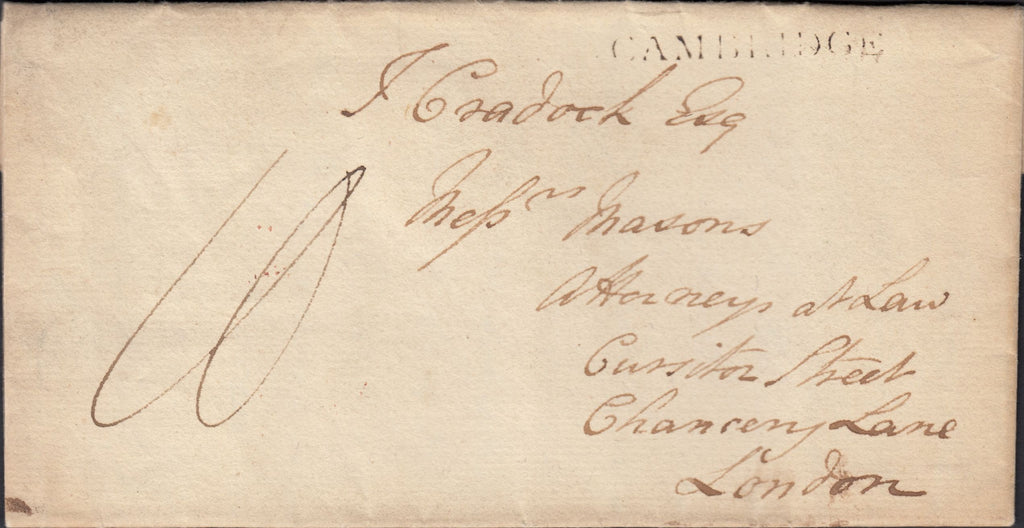 CAMBRIDGE
J Cradock Esq
Messrs Masons
Attorneys at Law
Cursitor Street
Chancery Lane
London
10